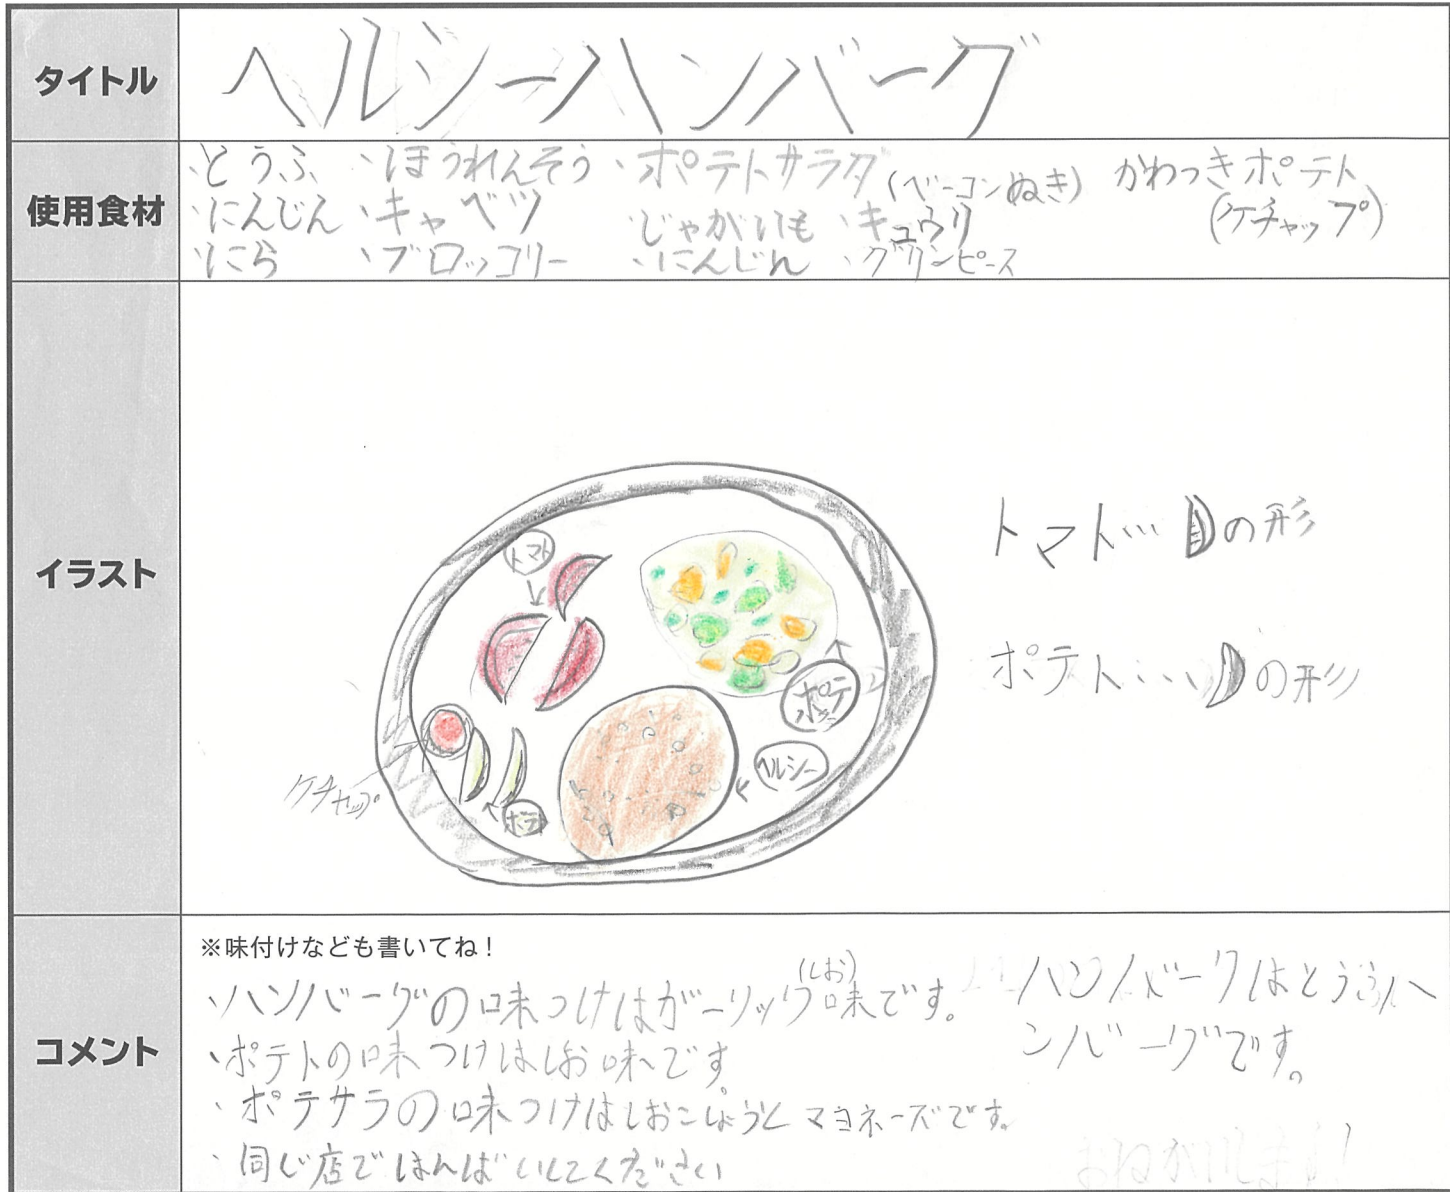 タイトル
ヘルシーハンバーグ
使用食材
・とうふ ・ほうれんそう ・ポテトサラダ(ベーコンぬき) かわつきポテト
・にんじん ・キャベツ じゃがいも ・キュウリ (ケチャップ)
・にら ・ブロッコリー ・にんじん ・グリンピース
イラスト
トマト
トマト…の形
ポテト…の形
ポテサラ
ヘルシー
ケチャップ
ポテト
コメント
※味付けなども書いてね!
・ハンバーグの味つけはガーリック(しお)味です。
・ポテトの味つけはしお味です
・ポテサラの味つけはしおこしょうとマヨネーズです。
・同じ店ではんばいしてください
ハンバーグはとうふハ
ンバーグです。
おねがいします!